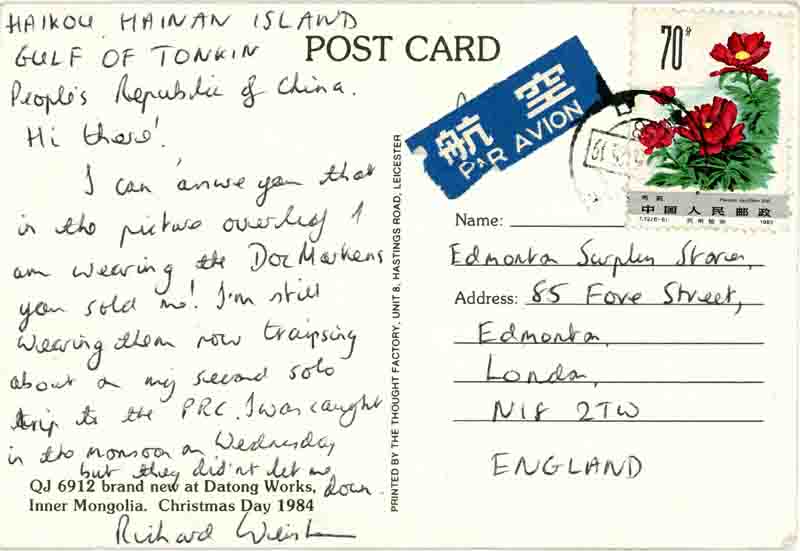 HAIKOU HAINAN ISLAND
GULF OF TONKIN
People's Republic of China.
Hi there!
I can assure you that
in the picture overleaf I
am wearing the Doc Martens
you sold me! I'm still
wearing them now traipsing
about on my second solo
trip to the PRC. I was caught
in the monsoon on Wednesday
but they didn't let me
down.
QJ 6912 brand new at Datong Works,
Inner Mongolia. Christmas Day 1984
Richard
PRINTED BY THE THOUGHT FACTORY, UNIT 8, HASTINGS ROAD, LEICESTER
POST CARD
航空
PAR AVION
70分
中国人民邮政
Name:
Edmonton Surplus Stores,
Address: 85 Fore Street,
Edmonton,
London,
N18 2TW
ENGLAND